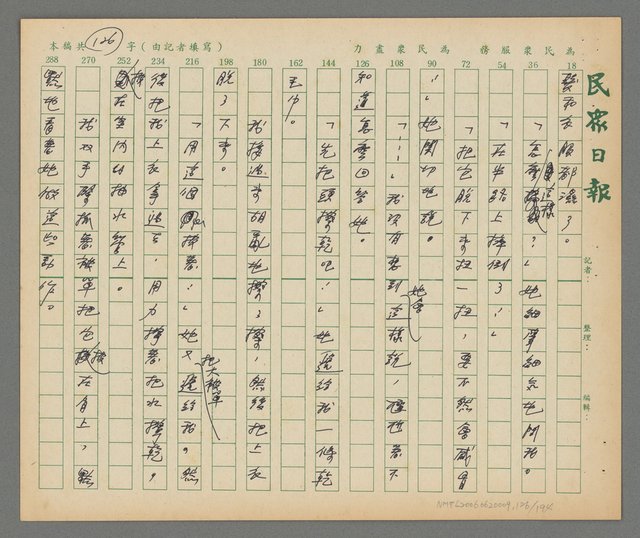 本稿共(126)字(由記者填寫)
為民眾服務 為民眾盡力
民眾日報
記者:
整理:
編輯:
18
36
54
72
90
108
126
144
162
180
198
216
234
252
270
288
髮和衣服都濕了。
「怎麼這樣?」她細聲細氣地問我。
「在半路上摔倒了。」
「把它脫下來扭一扭,要不然會感冒
。」她關切地說。
「……」我沒有想到她會這樣說,
知道怎麼回答她。
「先把頭擦乾吧!」她遞給我一條乾
毛巾。
我接過來胡亂地擦了擦,然後把上衣
脫了下來。
「用這個擦著。」她又把大被單遞給我。然
後把上衣拿過去,用力擰著把水擰乾,
在室內的抽水管上。
我双手緊抓著被單把它披在身上,默
默地看著她做這些動作。
NMTL20060620009,126/194